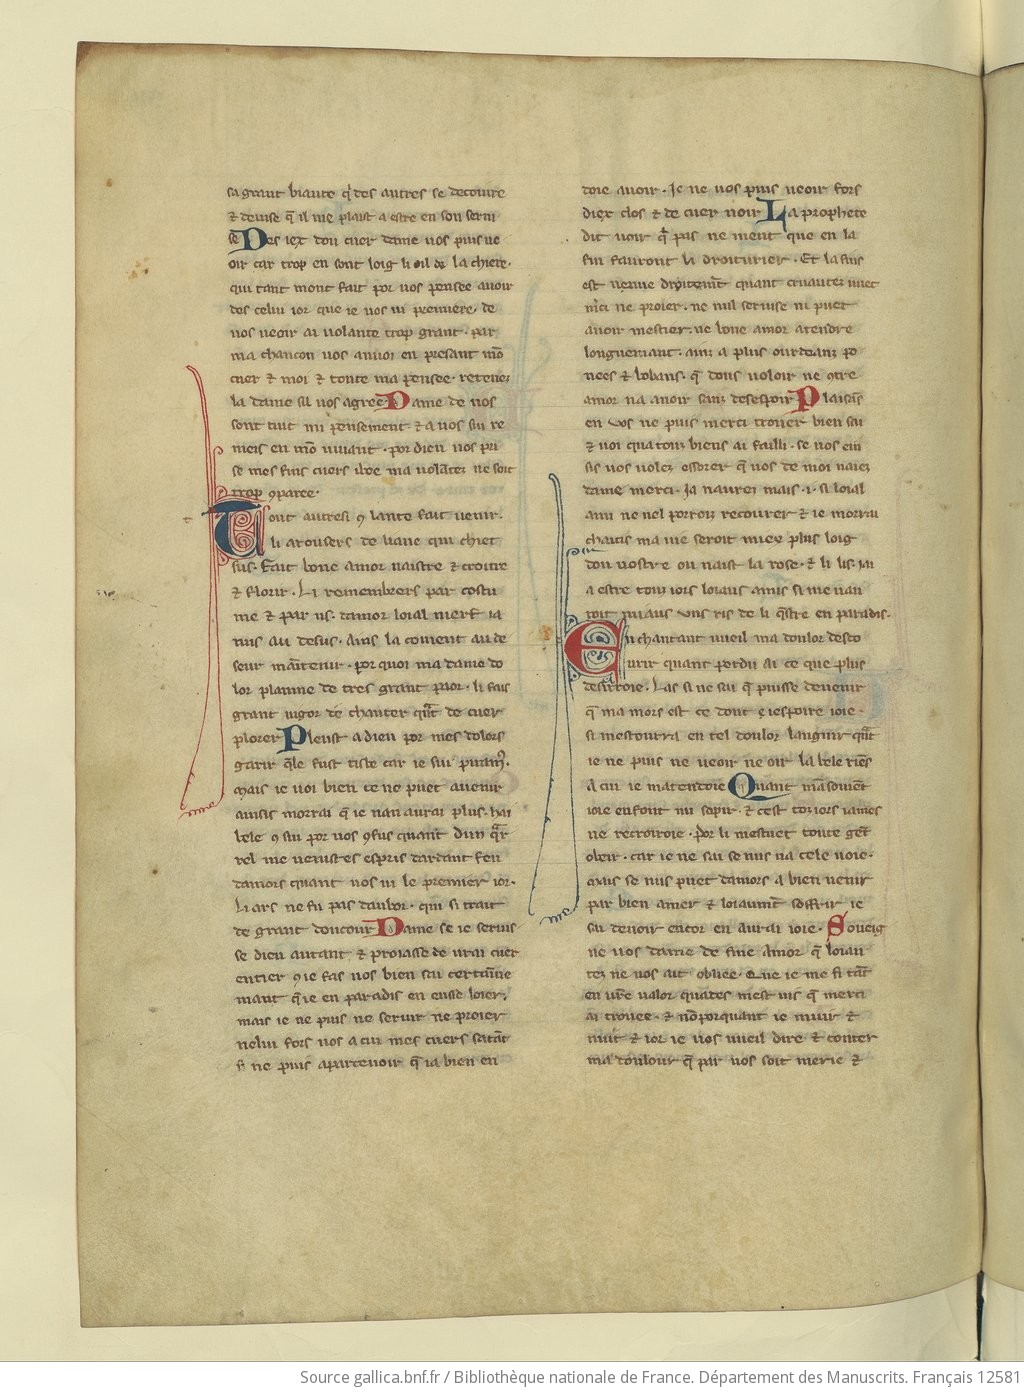 sa grant biaute q̇ des autres se decoivre
⁊ devise q̄ il me plaist a estre en son servi
se Des iex dou cuer dame vos puis ve
oir car trop en sont loig li oil de la chiere.
qui tant mont fait por vos pensee avoir
des celui ior que ie vos vi premiere. de
vos veoir ai volante trop grant. par
ma chancon vos anvoi en presant mō
cuer ⁊ moi ⁊ toute ma pensee. retenez
la dame sil vos agree. Dame de vos
sont tuit mi pensement ⁊ a vos sui re
meis en mō vivant. por dieu vos pri
se mes fins cuers ma volāter ne soit
trop ꝯparee.
Tout autresi ꝯ lante fait venir.
li arousers de liaue qui chiet
sus. Fait bone amor naistre ⁊ croitre
⁊ florir. Li remembrers par costu
me ⁊ par us. damor loial niert ia
nus au desus. Ains la covient au de
seur maītenir. por quoi ma dame do
lor plainne de tres grant paor. li fais
grant vigor de chanter quāt de cuer
plorer Pleust a dieu por mes dolors
garir q̄le fust tisbe car ie sui piramꝰ.
Mais ie voi bien ce ne puet avenir
ainsis morrai q̄ ie nan aurai plus. hai
bele ꝯ sui por vos ꝯfus quant dun q̄r
rel me venistes espris dardant feu
damors quant vos vi le premier ior.
Li ars ne fu pas daubor. qui si trait
de grant doucour Dame se ie servis
se dieu autant ⁊ proiasse de vrai cuer
entier ꝯ ie fas vos bien sai certaīne
mant q̄ ie en paradis en eusse loier.
mais ie ne puis ne servir ne proier
nelui fors vos a cui mes cuers satāt
si ne puis apartenoir q̄ ia bien en
doie avoir. Je ne vos puis veoir fors
diex clos ⁊ de cuer noir La prophete
dit voir q̄ pas ne ment que en la
fin fauront li droiturier. Et la fins
est venue droitemāt quant cruautez vaict
mˀci ne proier. ne nul servise ni puet
avoir mestier. ne bone amor atendre
longuemant. ainz a plus ourdeanz po
oers ⁊ bobans. q̄ douz voloir ne ꝯtre
amor na avoir sanz desespoir Plaisās
en vos ne puis merci trover bien sai
⁊ voi qua touz biens ai failli. se vos ein
sis vos volez essorer q̄ vos de moi naiez
dame merci. Ja naurez mais .i. si loial
ami ne nel porroiz recovrer ⁊ ie morrai
chaitis ma vie seroit miex plus loig
dou vostre ou naist la rose ⁊ li lis. iai
a estre touz iors loiaus amis si me vau
roit miaus uns ris de li q̄stre en paradis.
En chantant vueil ma doulor desco
uvrir quant perdu ai ce que plus
desirroie. Las si ne sai q̄ puisse devenir
q̄ ma mors est ce dont iespoire ioie.
si mestovra en tel doulor languir quāt
ie ne puis ne veoir ne oir la bele riēs
a cui ie matendoie Quant mā sovient
ioie enfont mi sopir. ⁊ cest toz iors iames
ne recroiroie. por li mestuet toute gēt
obeir. car ie ne sai se nus va cele voie.
Mais se nus puet damors a bien venir
par bien amer ⁊ loiaumāt soffrir ie
sai de voir encor en aurai ioie. Soveig
ne vos dame de fine amor q̄ loiau
tez ne vos ait obliee. Que ie me fi tāt
en vr̄e valor quades mest vis q̄ merci
ai trovee. ⁊ nōporquant ie muir ⁊
nuit ⁊ ior ie vos vueil dire ⁊ conter
ma doulour q̄ par vos soit merie ⁊
Source gallica.bnf.fr / Bibliothèque nationale de France. Département des Manuscrits. Français 12581